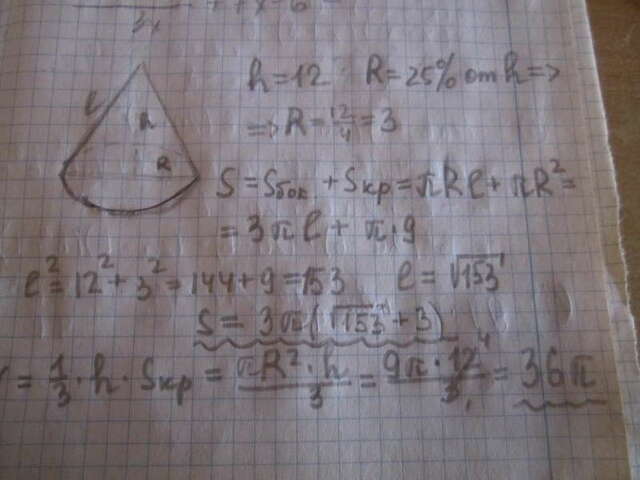 3x + 7x - 6 =
h = 12 R = 25% от h =>
=> R = 12/4 = 3
l h R
S = Sбок + Sкр = πRl + πR² =
= 3πl + π·9
l² = 12² + 3² = 144 + 9 = 153 l = √153
S = 3π(√153 + 3)
= 1/3 · h · Sкр = πR²·h/3 = 9π·12/3 = 36π